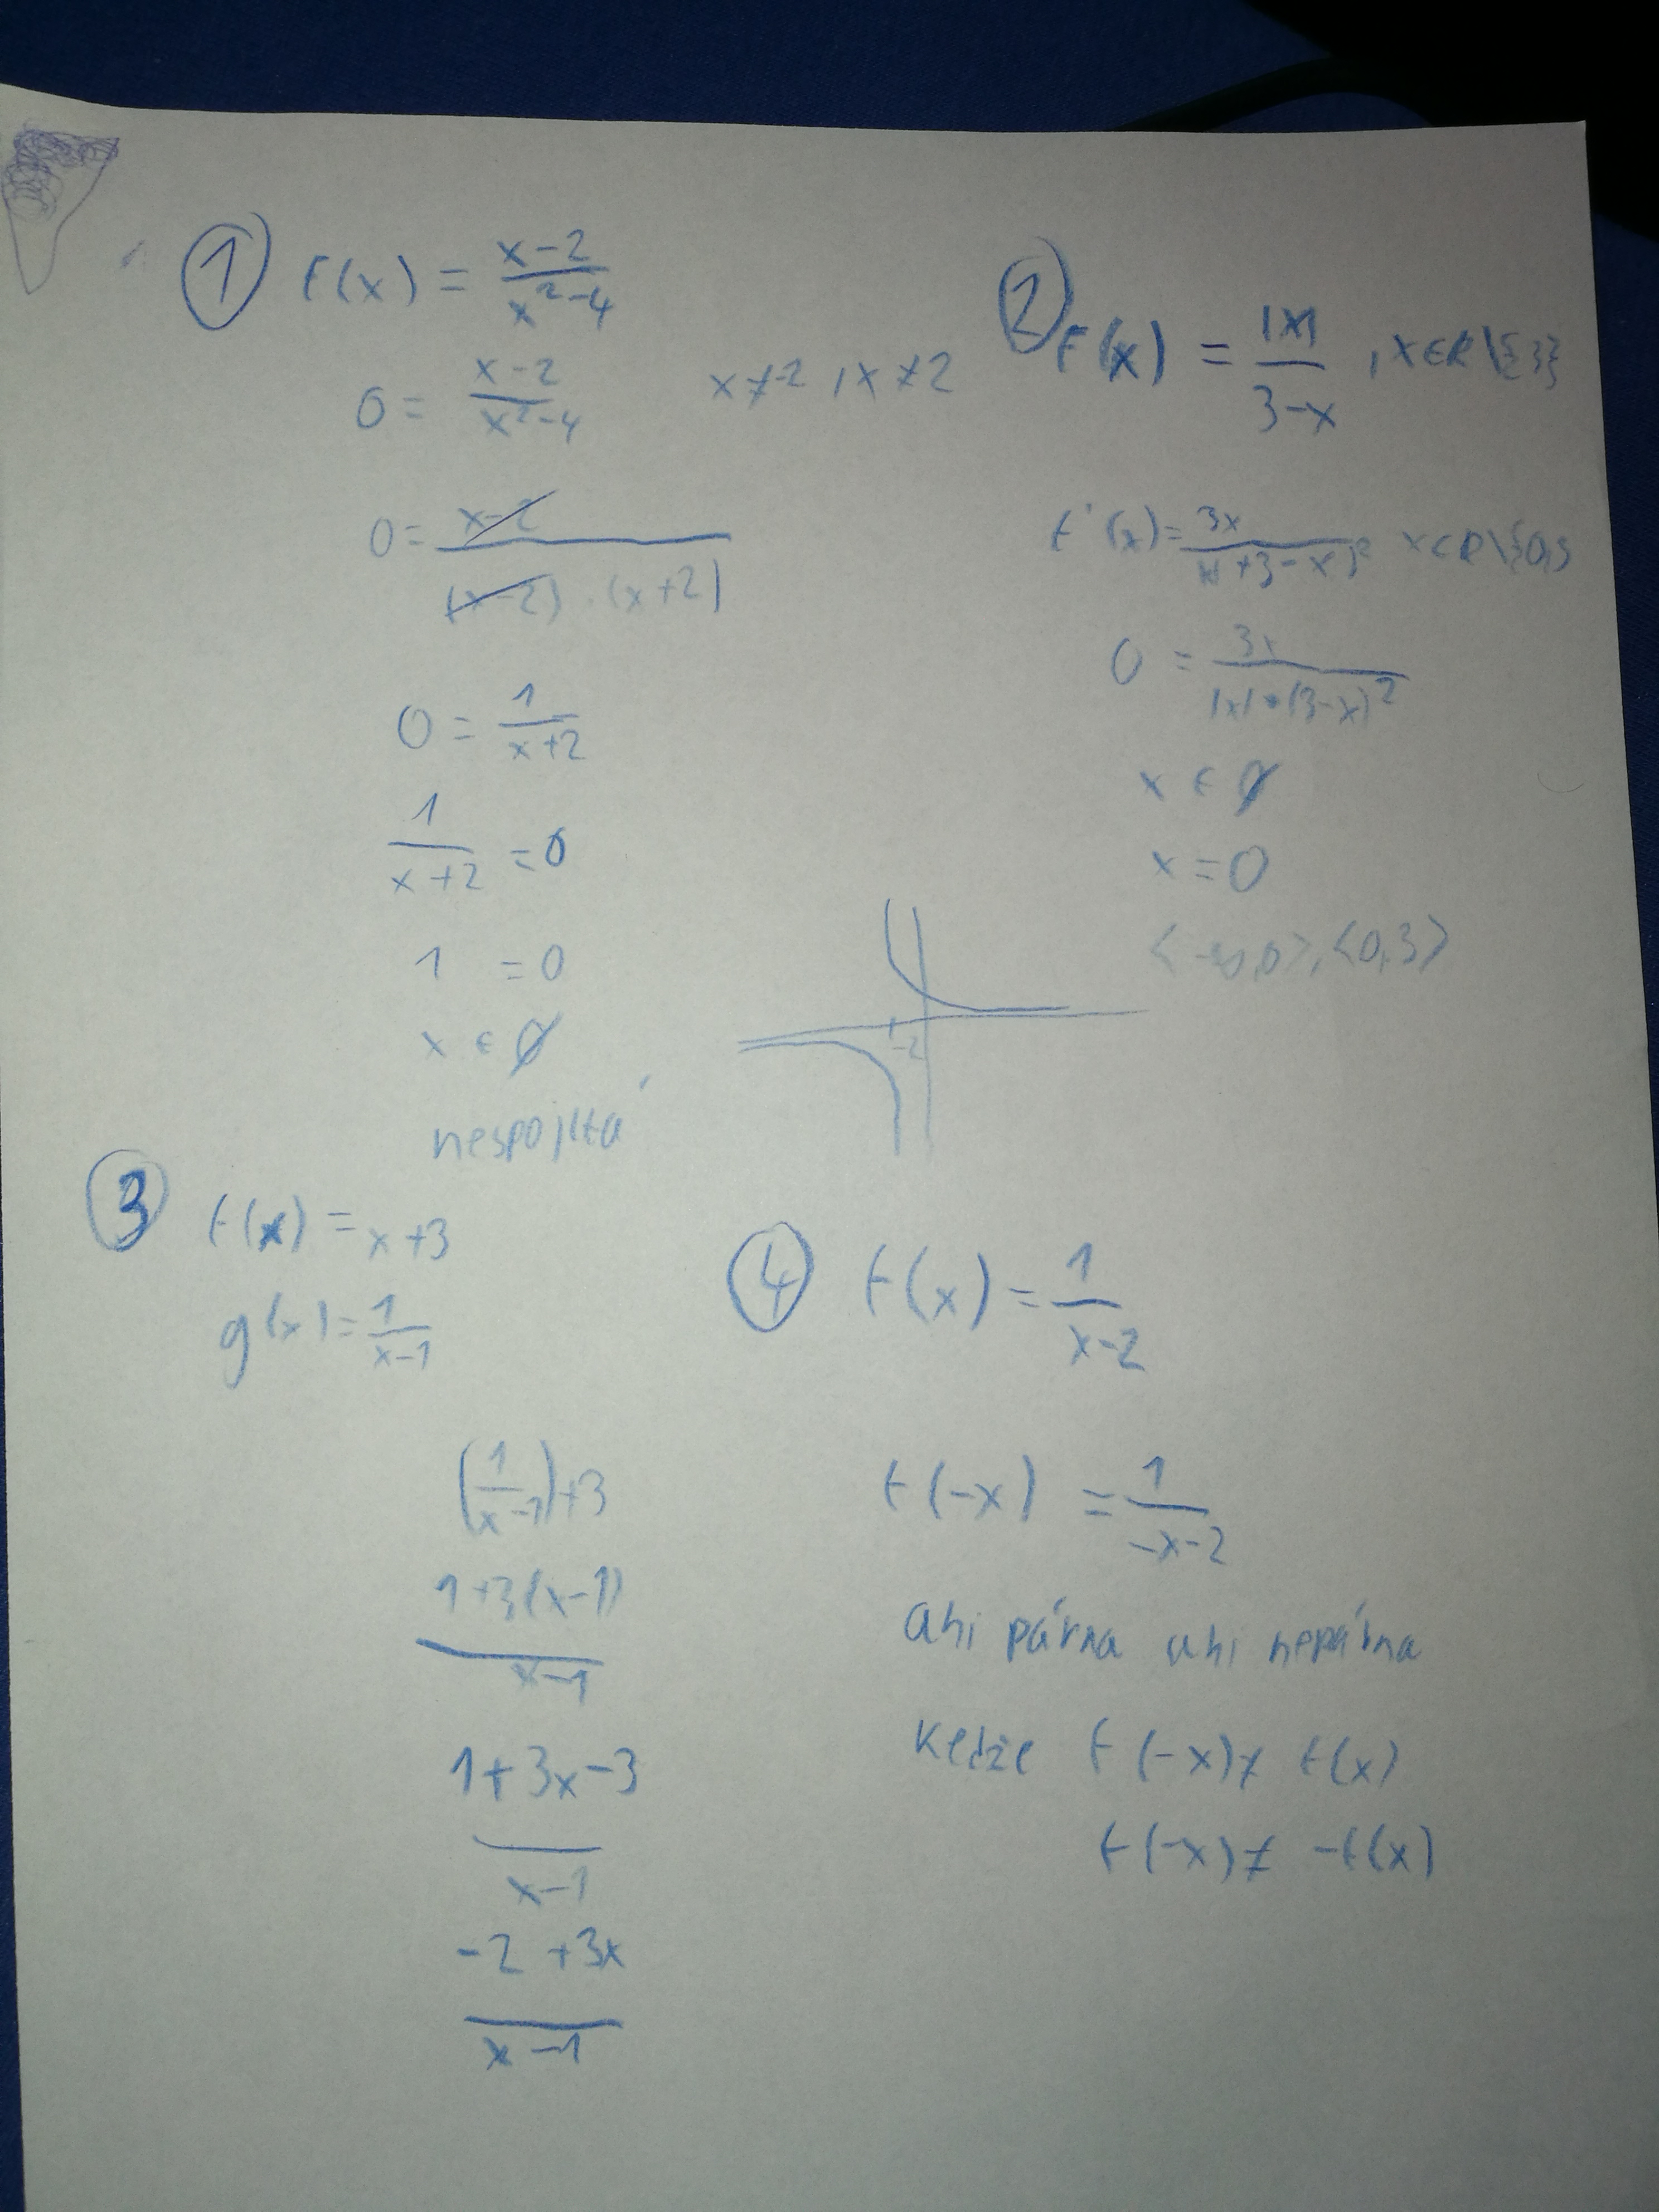 ① f(x) = \frac{x-2}{x^2-4}
0 = \frac{x-2}{x^2-4} x ≠ -2 , x ≠ 2
0 = \frac{x-2}{(x-2) \cdot (x+2)}
0 = \frac{1}{x+2}
\frac{1}{x+2} = 0
1 = 0
x ∈ ∅
nespojitá
-2
② f(x) = \frac{|x|}{3-x} , x∈R\{3}
f'(x) = \frac{3x}{ x∈R\{0,3
0 = \frac{3x}{|x| * (3-x)^2}
x ∈ ∅
x = 0
<-∞,0>, <0,3>
③ f(x) = x+3
g(x) = \frac{1}{x-1}
(\frac{1}{x-1})+3
\frac{1+3(x-1)}{x-1}
\frac{1+3x-3}{x-1}
\frac{-2+3x}{x-1}
④ f(x) = \frac{1}{x-2}
f(-x) = \frac{1}{-x-2}
ani párna ani nepárna
Kedže f(-x) ≠ f(x)
f(-x) ≠ -f(x)